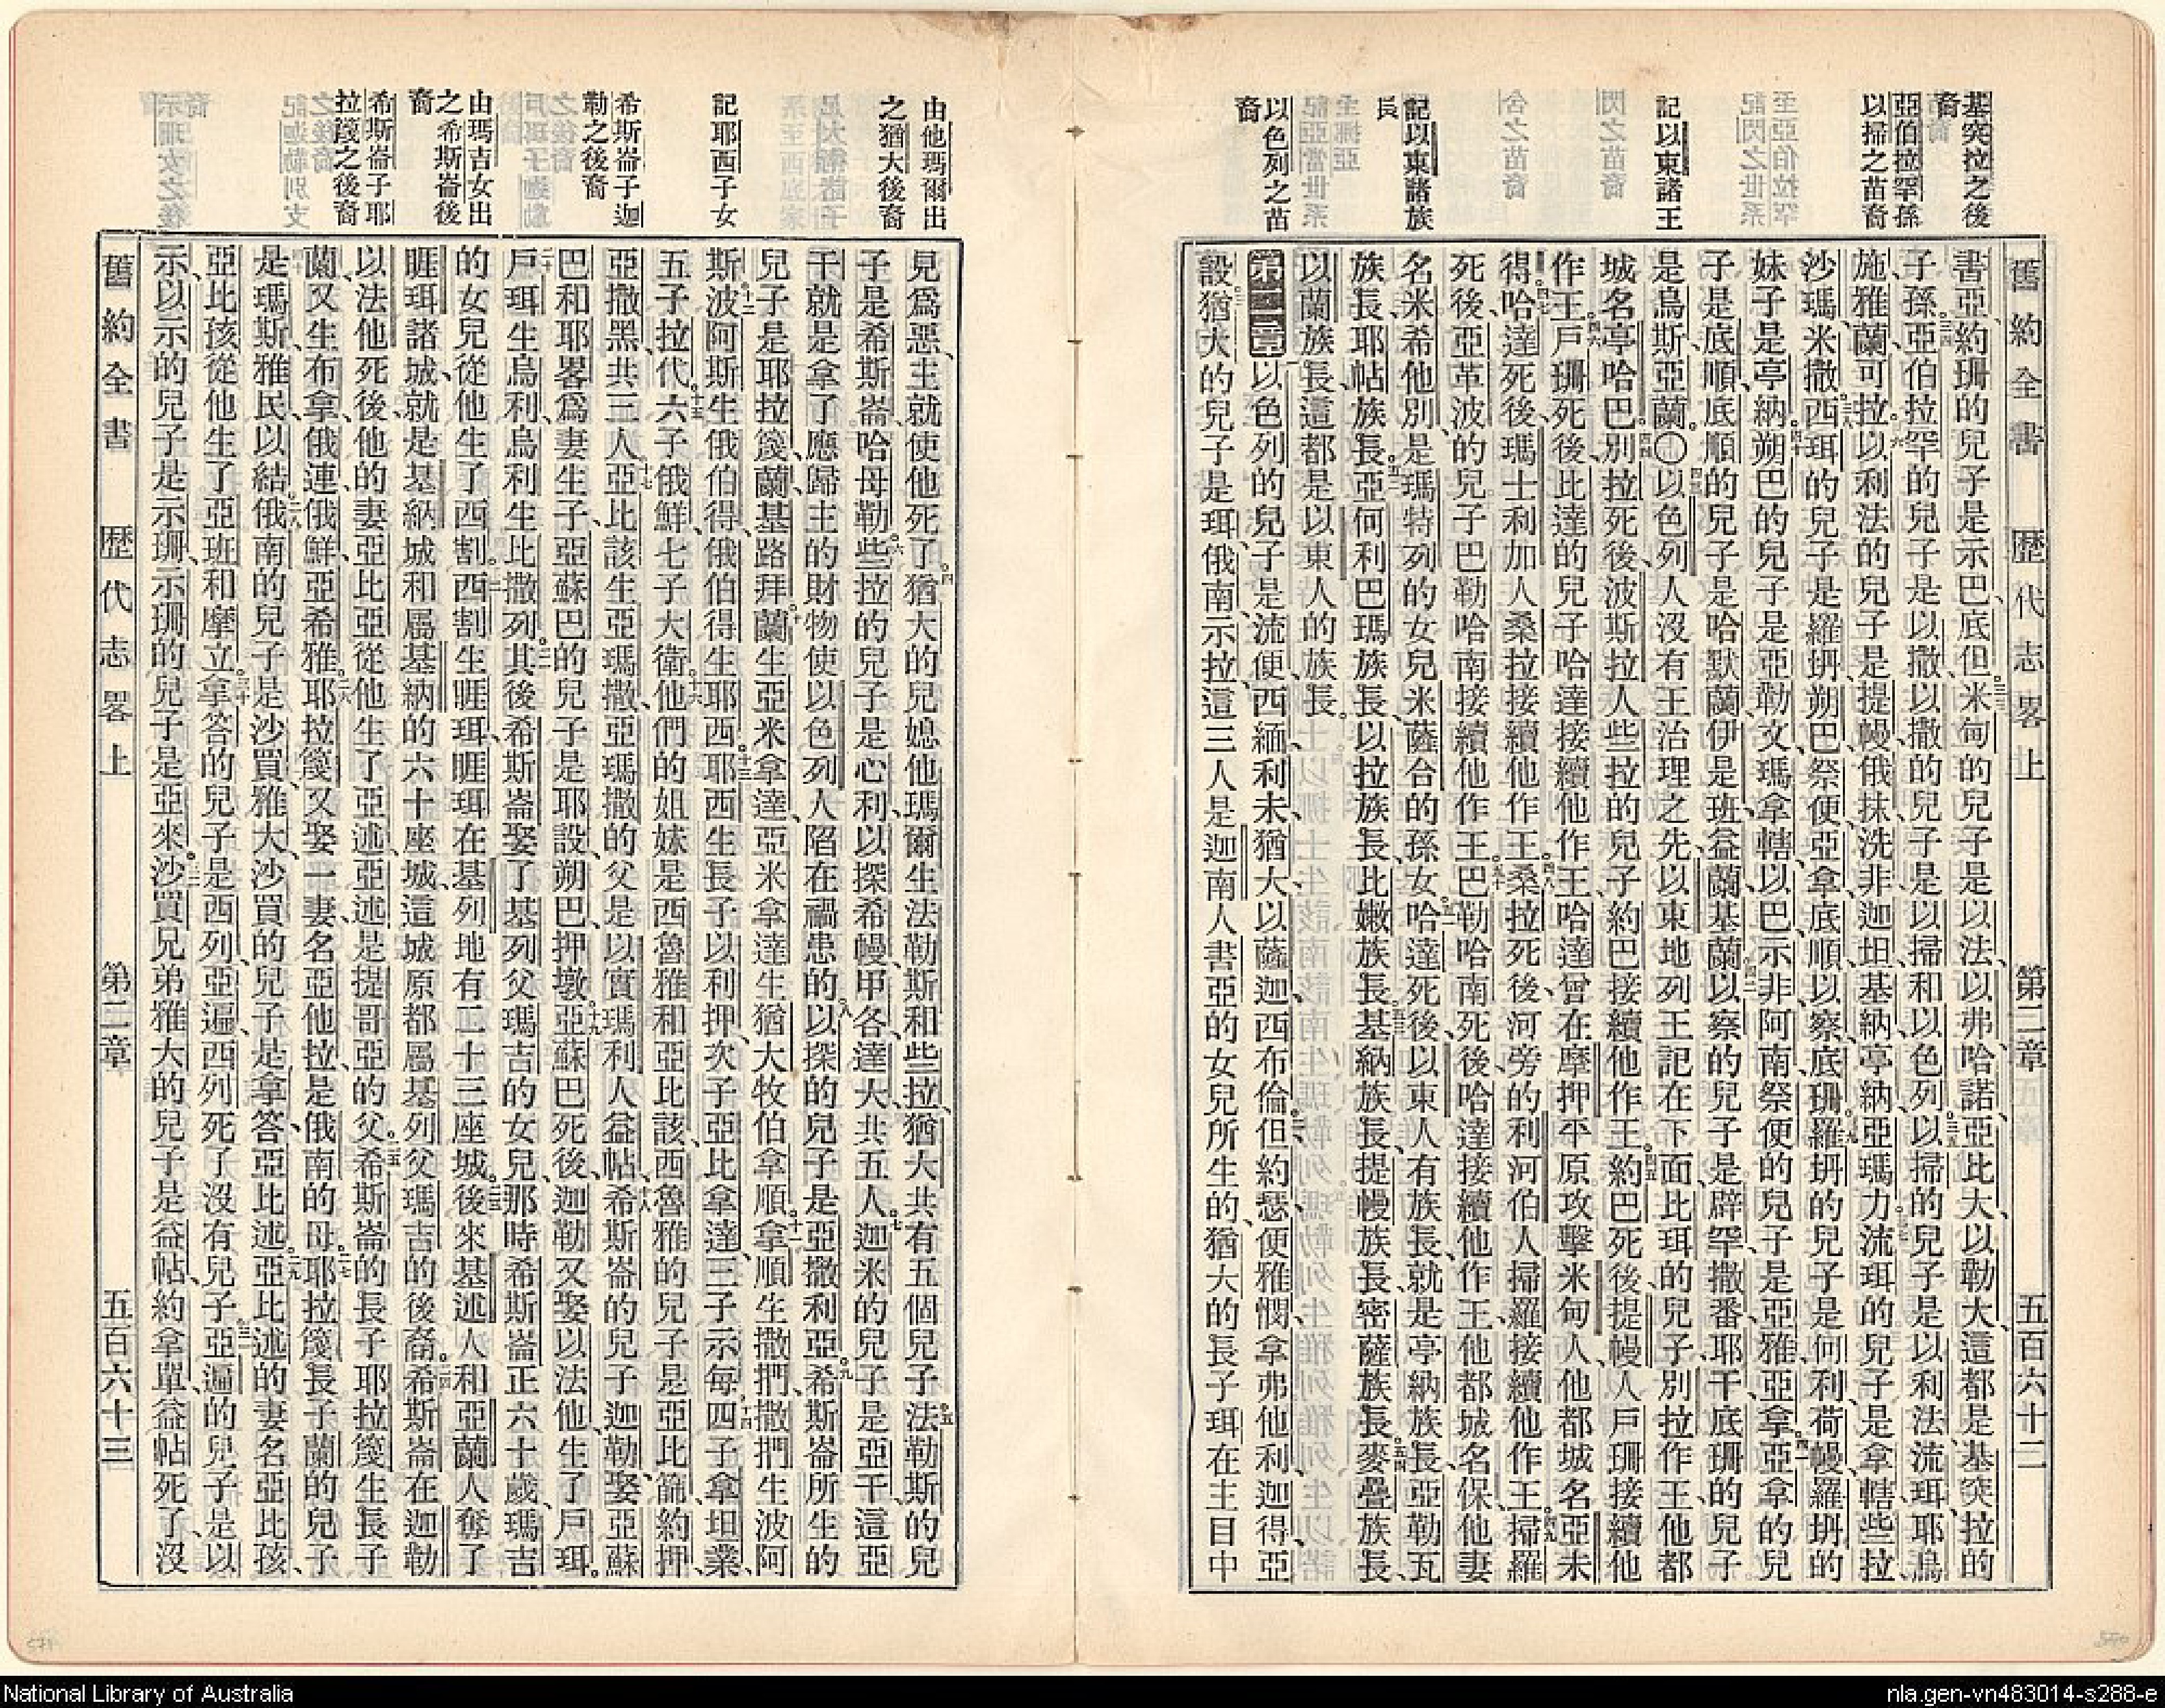 舊約全書 歷代志畧上 第二章 五百六十二
基突拉之後裔
亞伯拉罕孫以掃之苗裔
記以東諸王
記以東諸族長
以色列之苗裔
書亞、約珊的兒子是示巴、底但、米甸的兒子是以法、以弗、哈諾、亞比大、以勒大、這都是基突拉的
子孫、亞伯拉罕的兒子是以撒、以撒的兒子是以掃和以色列、以掃的兒子是以利法、流珥、耶烏
施、雅蘭、可拉、以利法的兒子是提幔、俄抹、洗非、迦坦、基納、亭納、亞瑪力、流珥的兒子是拿轄、些拉、
沙瑪、米撒、西珥的兒子是羅坍、朔巴、祭便、亞拿、底順、以察、底珊、羅坍的兒子是何利、荷幔、羅坍的
妹子是亭納、朔巴的兒子是亞勒文、瑪拿轄、以巴、示非、阿南、祭便的兒子是亞雅、亞拿、亞拿的兒
子是底順、底順的兒子是哈默蘭、伊是班、益蘭、基蘭、以察的兒子是辟罕、撒番、耶干、底珊的兒子
是烏斯、亞蘭。○以色列人沒有王治理之先、以東地列王記在下面、比珥的兒子別拉作王、他都
城名亭哈巴、別拉死後、波斯拉人些拉的兒子約巴接續他作王、約巴死後、提幔人戶珊接續他
作王、戶珊死後、比達的兒子哈達接續他作王、哈達曾在摩押平原攻擊米甸人、他都城名亞未
得、哈達死後、瑪士利加人桑拉接續他作王、桑拉死後、河旁的利河伯人掃羅接續他作王、掃羅
死後、亞革波的兒子巴勒哈南接續他作王、巴勒哈南死後、哈達接續他作王、他都城名保、他妻
名米希他別、是瑪特列的女兒、米薩合的孫女、哈達死後、以東人有族長、就是亭納族長、亞勒瓦
族長、耶帖族長、亞何利巴瑪族長、以拉族長、比嫩族長、基納族長、提幔族長、密薩族長、麥疊族長、
以蘭族長、這都是以東人的族長。
第二章 以色列的兒子是流便、西緬、利未、猶大、以薩迦、西布倫、但、約瑟、便雅憫、拿弗他利、迦得、亞
設、猶大的兒子是珥、俄南、示拉、這三人是迦南人書亞的女兒所生的、猶大的長子珥在主目中
由他瑪爾出之猶大後裔
記耶西子女
希斯崙子迦勒之後裔
由瑪吉女出之希斯崙後裔
希斯崙子耶拉篾之後裔
見爲惡、主就使他死了。猶大的兒媳他瑪爾生法勒斯和些拉、猶大共有五個兒子、法勒斯的兒
子是希斯崙、哈母勒、些拉的兒子是心利、以探、希幔、甲各、達大、共五人、迦米的兒子是亞干、這亞
干就是拿了應歸主的財物、使以色列人陷在禍患的、以探的兒子是亞撒利亞、希斯崙所生的
兒子是耶拉篾、蘭、基路拜、蘭生亞米拿達、亞米拿達生猶大牧伯拿順、拿順生撒捫、撒捫生波阿
斯、波阿斯生俄伯得、俄伯得生耶西、耶西生長子以利押、次子亞比拿達、三子示每、四子拿坦業、
五子拉代、六子俄鮮、七子大衛、他們的姐妹是西魯雅和亞比該、西魯雅的兒子是亞比篩、約押、
亞撒黑、共三人、亞比該生亞瑪撒、亞瑪撒的父是以實瑪利人益帖、希斯崙的兒子迦勒娶亞蘇
巴和耶畧爲妻生子、亞蘇巴的兒子是耶設、朔巴、押墩、亞蘇巴死後、迦勒又娶以法他、生了戶珥。
戶珥生烏利、烏利生比撒列、其後希斯崙娶了基列父瑪吉的女兒、那時希斯崙正六十歲、瑪吉
的女兒從他生了西割、西割生睚珥、睚珥在基列地有二十三座城、後來基述人和亞蘭人奪了
睚珥諸城、就是基納城和屬基納的六十座城、這城原都屬基列父瑪吉的後裔、希斯崙在迦勒
以法他死後、他的妻亞比亞從他生了亞述、亞述是提哥亞的父、希斯崙的長子耶拉篾生長子
蘭、又生布拿、俄連、俄鮮、亞希雅、耶拉篾又娶一妻、名亞他拉、是俄南的母、耶拉篾長子蘭的兒子
是瑪斯、雅民、以結、俄南的兒子是沙買、雅大、沙買的兒子是拿答、亞比述、亞比述的妻名亞比孩、
亞比孩從他生了亞班和摩立、拿答的兒子是西列、亞遍、西列死了沒有兒子、亞遍的兒子是以
示、以示的兒子是示珊、示珊的兒子是亞來、沙買兄弟雅大的兒子是益帖、約拿單、益帖死了、沒
舊約全書 歷代志畧上 第二章 五百六十三
National Library of Australia
nla.gen-vn483014-s288-e